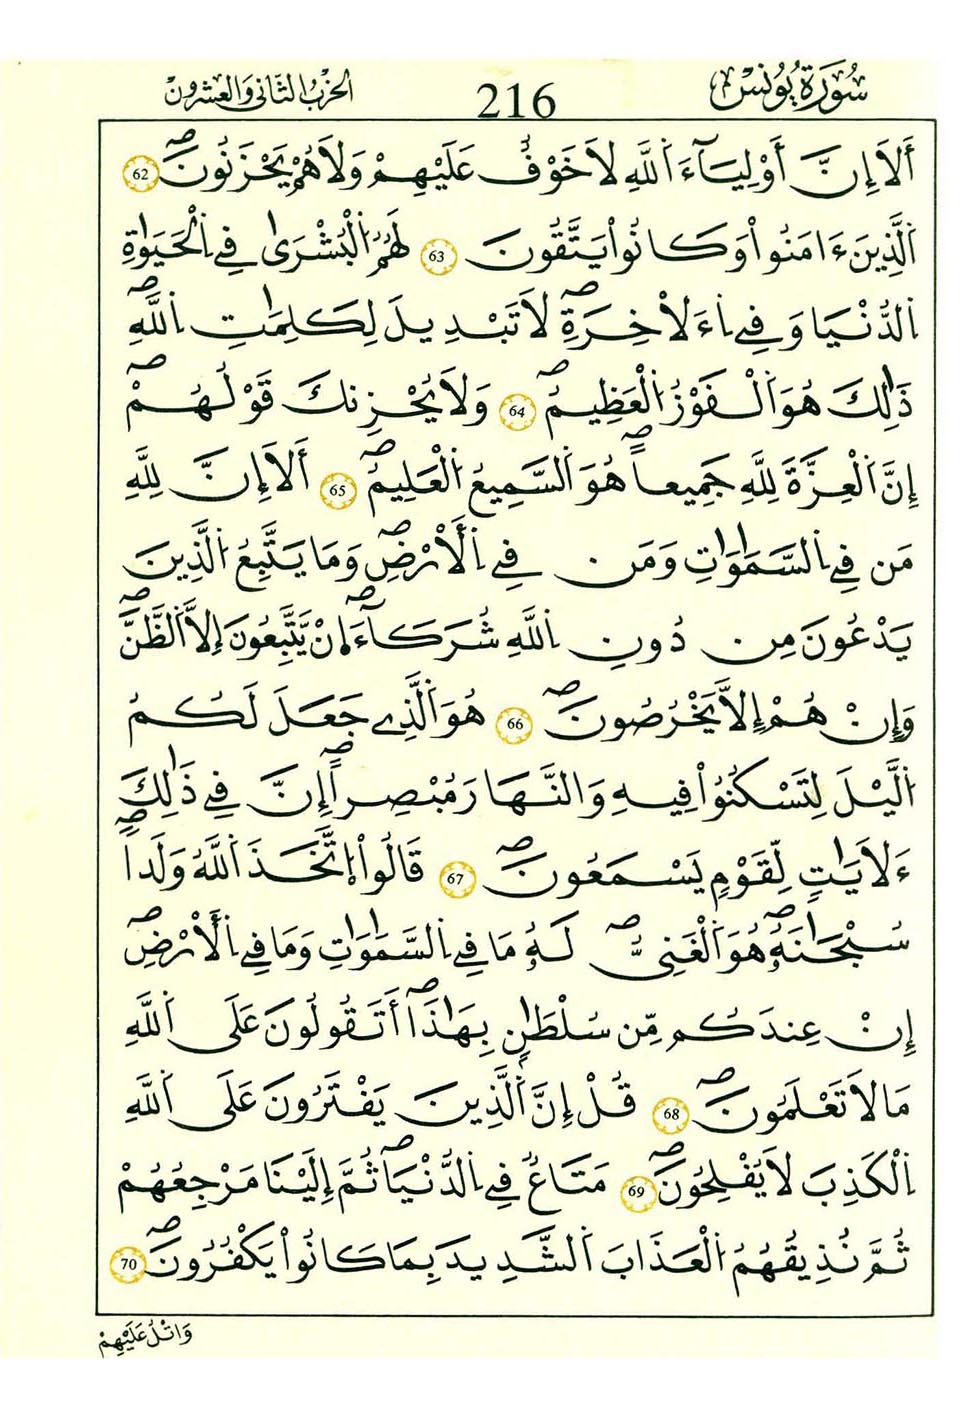 سُورَةُ يُونُسَ 216 الحزب الثاني والعشرون
أَلَا إِنَّ أَوْلِيَآءَ اَ۬للَّهِ لَا خَوْفٌ عَلَيْهِمْ وَلَا هُمْ يَحْزَنُونَۖ 62
اَ۬لذِينَ ءَامَنُواْ وَكَانُواْ يَتَّقُونَ 63 لَهُمُ اُ۬لْبُشْرَىٰ فِے اِ۬لْحَيَوٰةِ
اِ۬لدُّنْيَا وَفِے اِ۬ءَلَاخِرَةِۖ لَا تَبْدِيلَ لِكَلِمَٰتِ اِ۬للَّهِۖ
ذَٰلِكَ هُوَ اَ۬لْفَوْزُ اُ۬لْعَظِيمُۖ 64 وَلَا يُحْزِنكَ قَوْلُهُمْۖ
إِنَّ اَ۬لْعِزَّةَ لِلَّهِ جَمِيعاًۖ هُوَ اَ۬لسَّمِيعُ اُ۬لْعَلِيمُۖ 65 أَلَا إِنَّ لِلَّهِ
مَن فِے اِ۬لسَّمَٰوَٰتِ وَمَن فِے اِ۬لْأَرْضِۖ وَمَا يَتَّبِعُ اُ۬لذِينَ
يَدْعُونَ مِن دُونِ اِ۬للَّهِ شُرَكَآءَۖ اِنْ يَّتَّبِعُونَ إِلَّا اَ۬لظَّنَّۖ
وَإِنْ هُمْ إِلَّا يَخْرُصُونَۖ 66 هُوَ اَ۬لذِے جَعَلَ لَكُمُ
اُ۬ليْلَ لِتَسْكُنُواْ فِيهِ وَالنَّهَارَ مُبْصِراًۖ إِنَّ فِے ذَٰلِكَ
ءَلَايَٰتٍ لِّقَوْمٍ يَسْمَعُونَۖ 67 قَالُواْ اُ۪تَّخَذَ اَ۬للَّهُ وَلَداًۖ
سُبْحَٰنَهُۥۖ هُوَ اَ۬لْغَنِيُّۖ لَهُۥ مَا فِے اِ۬لسَّمَٰوَٰتِ وَمَا فِے اِ۬لْأَرْضِۖ
إِنْ عِندَكُم مِّن سُلْطَٰنٍ بِهَٰذَاۖ أَتَقُولُونَ عَلَى اَ۬للَّهِ
مَا لَا تَعْلَمُونَۖ 68 قُلْ إِنَّ اَ۬لذِينَ يَفْتَرُونَ عَلَى اَ۬للَّهِ
اِ۬لْكَذِبَ لَا يُفْلِحُونَۖ 69 مَتَاعٌ فِے اِ۬لدُّنْيَاۖ ثُمَّ إِلَيْنَا مَرْجِعُهُمْ
ثُمَّ نُذِيقُهُمُ اُ۬لْعَذَابَ اَ۬لشَّدِيدَ بِمَا كَانُواْ يَكْفُرُونَۖ 70
وَاتْلُ عَلَيْهِمْ